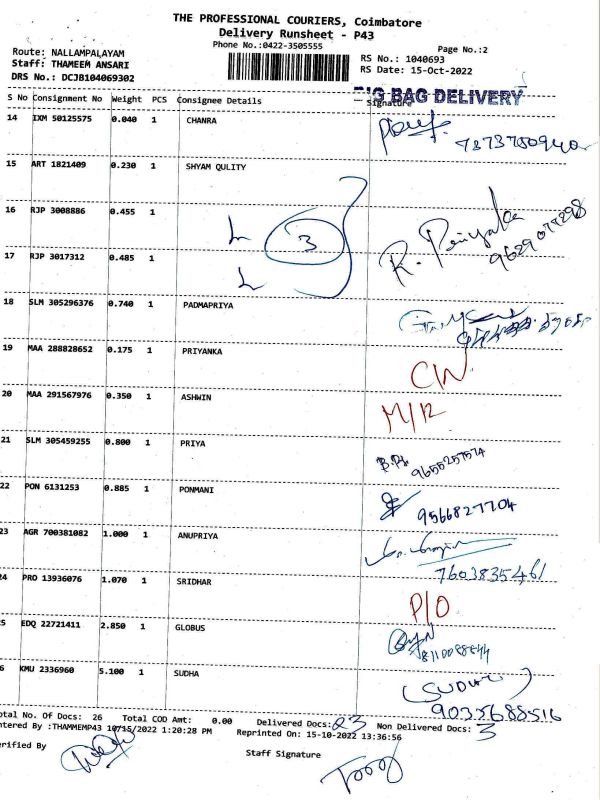 THE PROFESSIONAL COURIERS, Coimbatore
Delivery Runsheet - P43
Phone No.:0422-3505555
Page No.:2
Route: NALLAMPALAYAM
Staff: THAMEEM ANSARI
DRS No.: DCJB104069302
RS No.: 1040693
RS Date: 15-Oct-2022
BIG BAG DELIVERY
S No Consignment No Weight PCS Consignee Details Signature
14 IXM 50125575 0.040 1 CHANRA
15 ART 1821409 0.230 1 SHYAM QULITY
16 RJP 3008886 0.455 1
3
R. Priyanka
17 RJP 3017312 0.485 1
18 SLM 305296376 0.740 1 PADMAPRIYA
19 MAA 288828652 0.175 1 PRIYANKA
C/N
20 MAA 291567976 0.350 1 ASHWIN
M/R
21 SLM 305459255 0.800 1 PRIYA
9655257574
22 PON 6131253 0.885 1 PONMANI
9566827704
23 AGR 700381082 1.000 1 ANUPRIYA
7603835461
24 PRO 13936076 1.070 1 SRIDHAR
P/O
25 EDQ 22721411 2.850 1 GLOBUS
26 KMU 2336960 5.100 1 SUDHA
(SUDHA)
9035688516
Total No. Of Docs: 26 Total COD Amt: 0.00 Delivered Docs: 23 Non Delivered Docs: 3
Entered By :THAMMEMP43 10/15/2022 1:20:28 PM Reprinted On: 15-10-2022 13:36:56
Verified By
Staff Signature